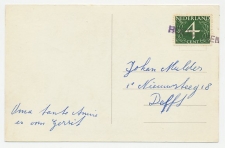 NEDERLAND
4
CENT
Johan Mulder
1e Nieuwsteeg 18
Delft
Oma tante Annie
en om Gerrit